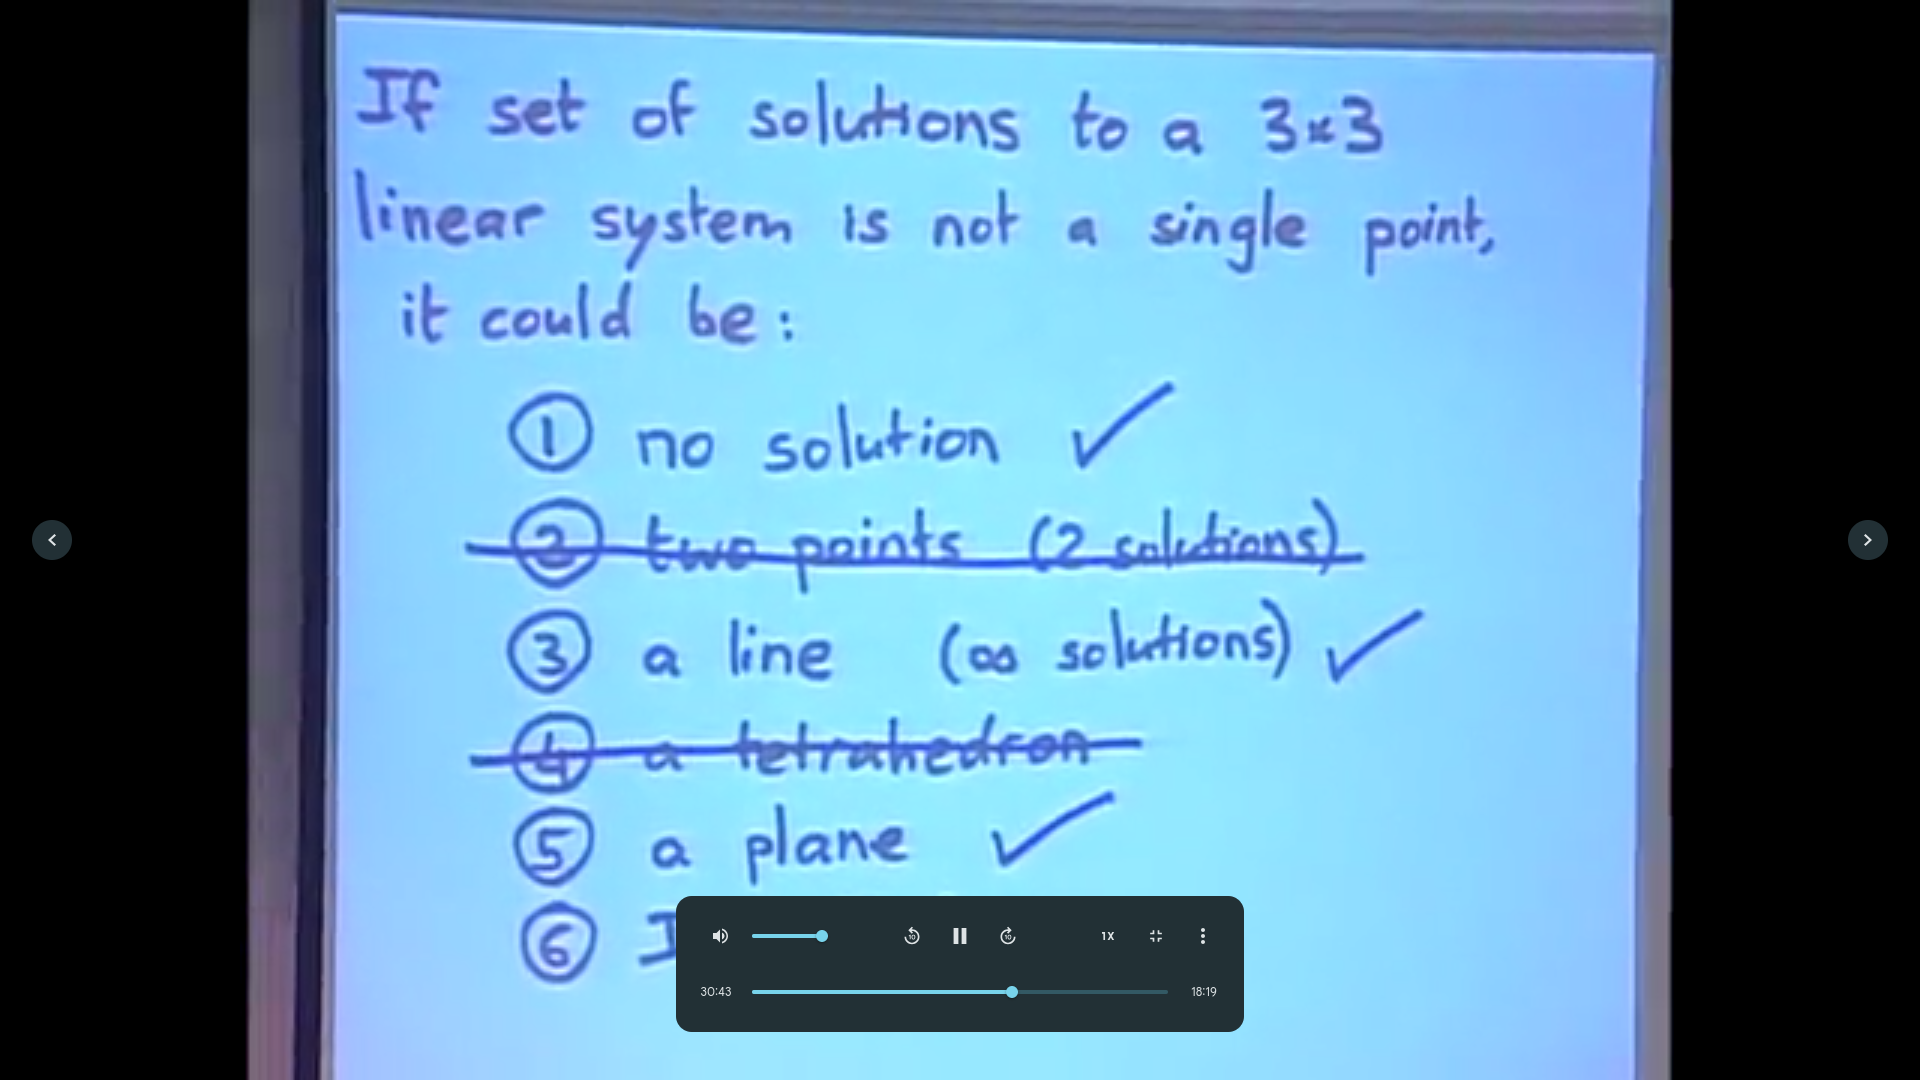 If set of solutions to a 3×3
linear system is not a single point,
it could be:
① no solution ✓
② two points (2 solutions)
③ a line (∞ solutions) ✓
④ a tetrahedron
⑤ a plane ✓
⑥ I
1X
30:43
18:19